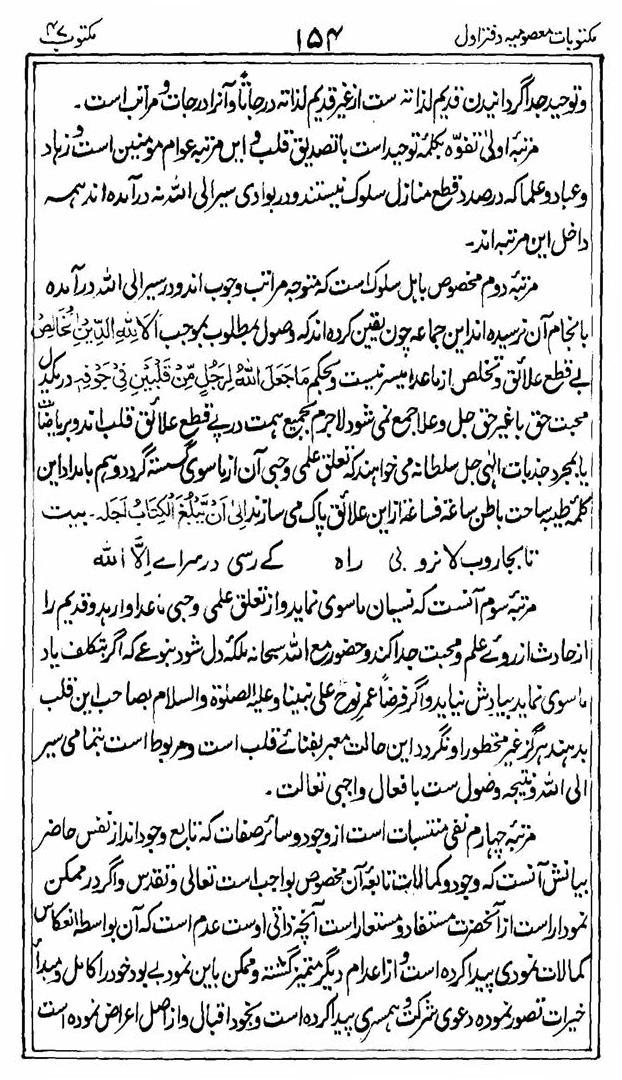 مکتوبات معصومیہ دفتر اول ۱۵۴ مکتوب ۴۷
و توحید جدا گردانیدن قدیم لذاتہ ست از غیر قدیم لذاتہ درجاتا و آنرا درجات و مراتب است۔
مرتبۂ اولی تفوّہ بکلمۂ توحید است با تصدیق قلب و این مرتبہ عوام مؤمنین است و زہاد
و عباد و علما کہ در صدد قطع منازل سلوک نیستند و در بوادی سیر الی اللہ نہ در آمدہ اند ہمہ
داخل این مرتبہ اند۔
مرتبۂ دوم مخصوص باہل سلوک است کہ متوجہ مراتب وجوب اند و در سیر الی اللہ در آمدہ
بانجام آن نرسیدہ اند این جماعہ چون یقین کردہ اند کہ وصول بمطلوب بموجب اَلَا لِلّٰہِ الدِّیْنُ الْخَالِصُ
بی قطع علائق و تخلص از ماعدا میسر نیست و بحکم مَا جَعَلَ اللّٰهُ لِرَجُلٍ مِّنْ قَلْبَيْنِ فِیْ جَوْفِہٖ در یکدل
محبت حق با غیر حق جل و علا جمع نمی شود لاجرم بجمیع ہمت در پے قطع علائق قلب اند و بریاضات
یا بمجرد جذبات الہی جل سلطانہ می خواہند کہ تعلق علمی و حبی آن از ماسوی گسستہ گردد و ہم بامداد این
کلمۂ طیبہ ساحت باطن ساعۃ فساعۃ از این علائق پاک می سازند اِلٰی اَنْ یَّبْلُغَ الْکِتَابُ اَجَلَہٗ۔ بیت
تا بجاروب لا نروبی راہ کے رسی در سراے اِلَّا اللہ
مرتبۂ سوم آنست کہ نسیان ماسوی نماید و از تعلق علمی و حبی ماعدا وارہد و قدیم را
از حادث از روئے علم و محبت جدا کند و حضور مع اللہ سبحانہ ملکۂ دل شود بنوعے کہ اگر بتکلف یاد
ماسوی نماید بیادش نیاید و اگر فرضاً عمر نوح علی نبینا و علیہ الصلوٰۃ والسلام بصاحب این قلب
بدہند ہرگز غیر مخطور او نگردد این حالت معبر بفنائے قلب است و مربوط است بتمامی سیر
الی اللہ و نتیجہ وصول ست بافعال واجبی تعالت۔
مرتبۂ چہارم نفی منتسبات است از وجود و سائر صفات کہ تابع وجود اند از نفس حاضر
بیانش آنست کہ وجود و کمالات تابعۂ آن مخصوص بواجب است تعالی و تقدس و اگر در ممکن
نمودار است از آنحضرت مستفاد و مستعار است آنچہ ذاتی اوست عدم است کہ آن بواسطہ انعکاس
کمالات نمودی پیدا کردہ است و از اعدام دیگر متمیز گشتہ و ممکن باین نمود بے بود خود را کامل و مبدأ
خیرات تصور نمودہ دعوی شرکت و ہمسری پیدا کردہ است و بخود اقبال و از اصل اعراض نمودہ است